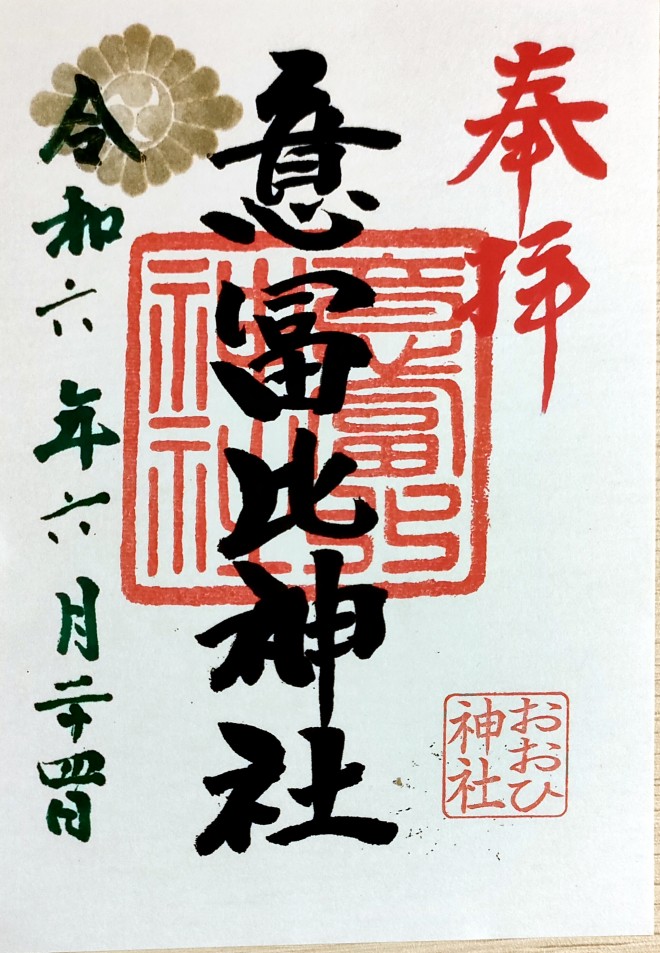 奉拝
意冨比神社
意富比
神社
おおひ
神社
令和六年六月二十四日